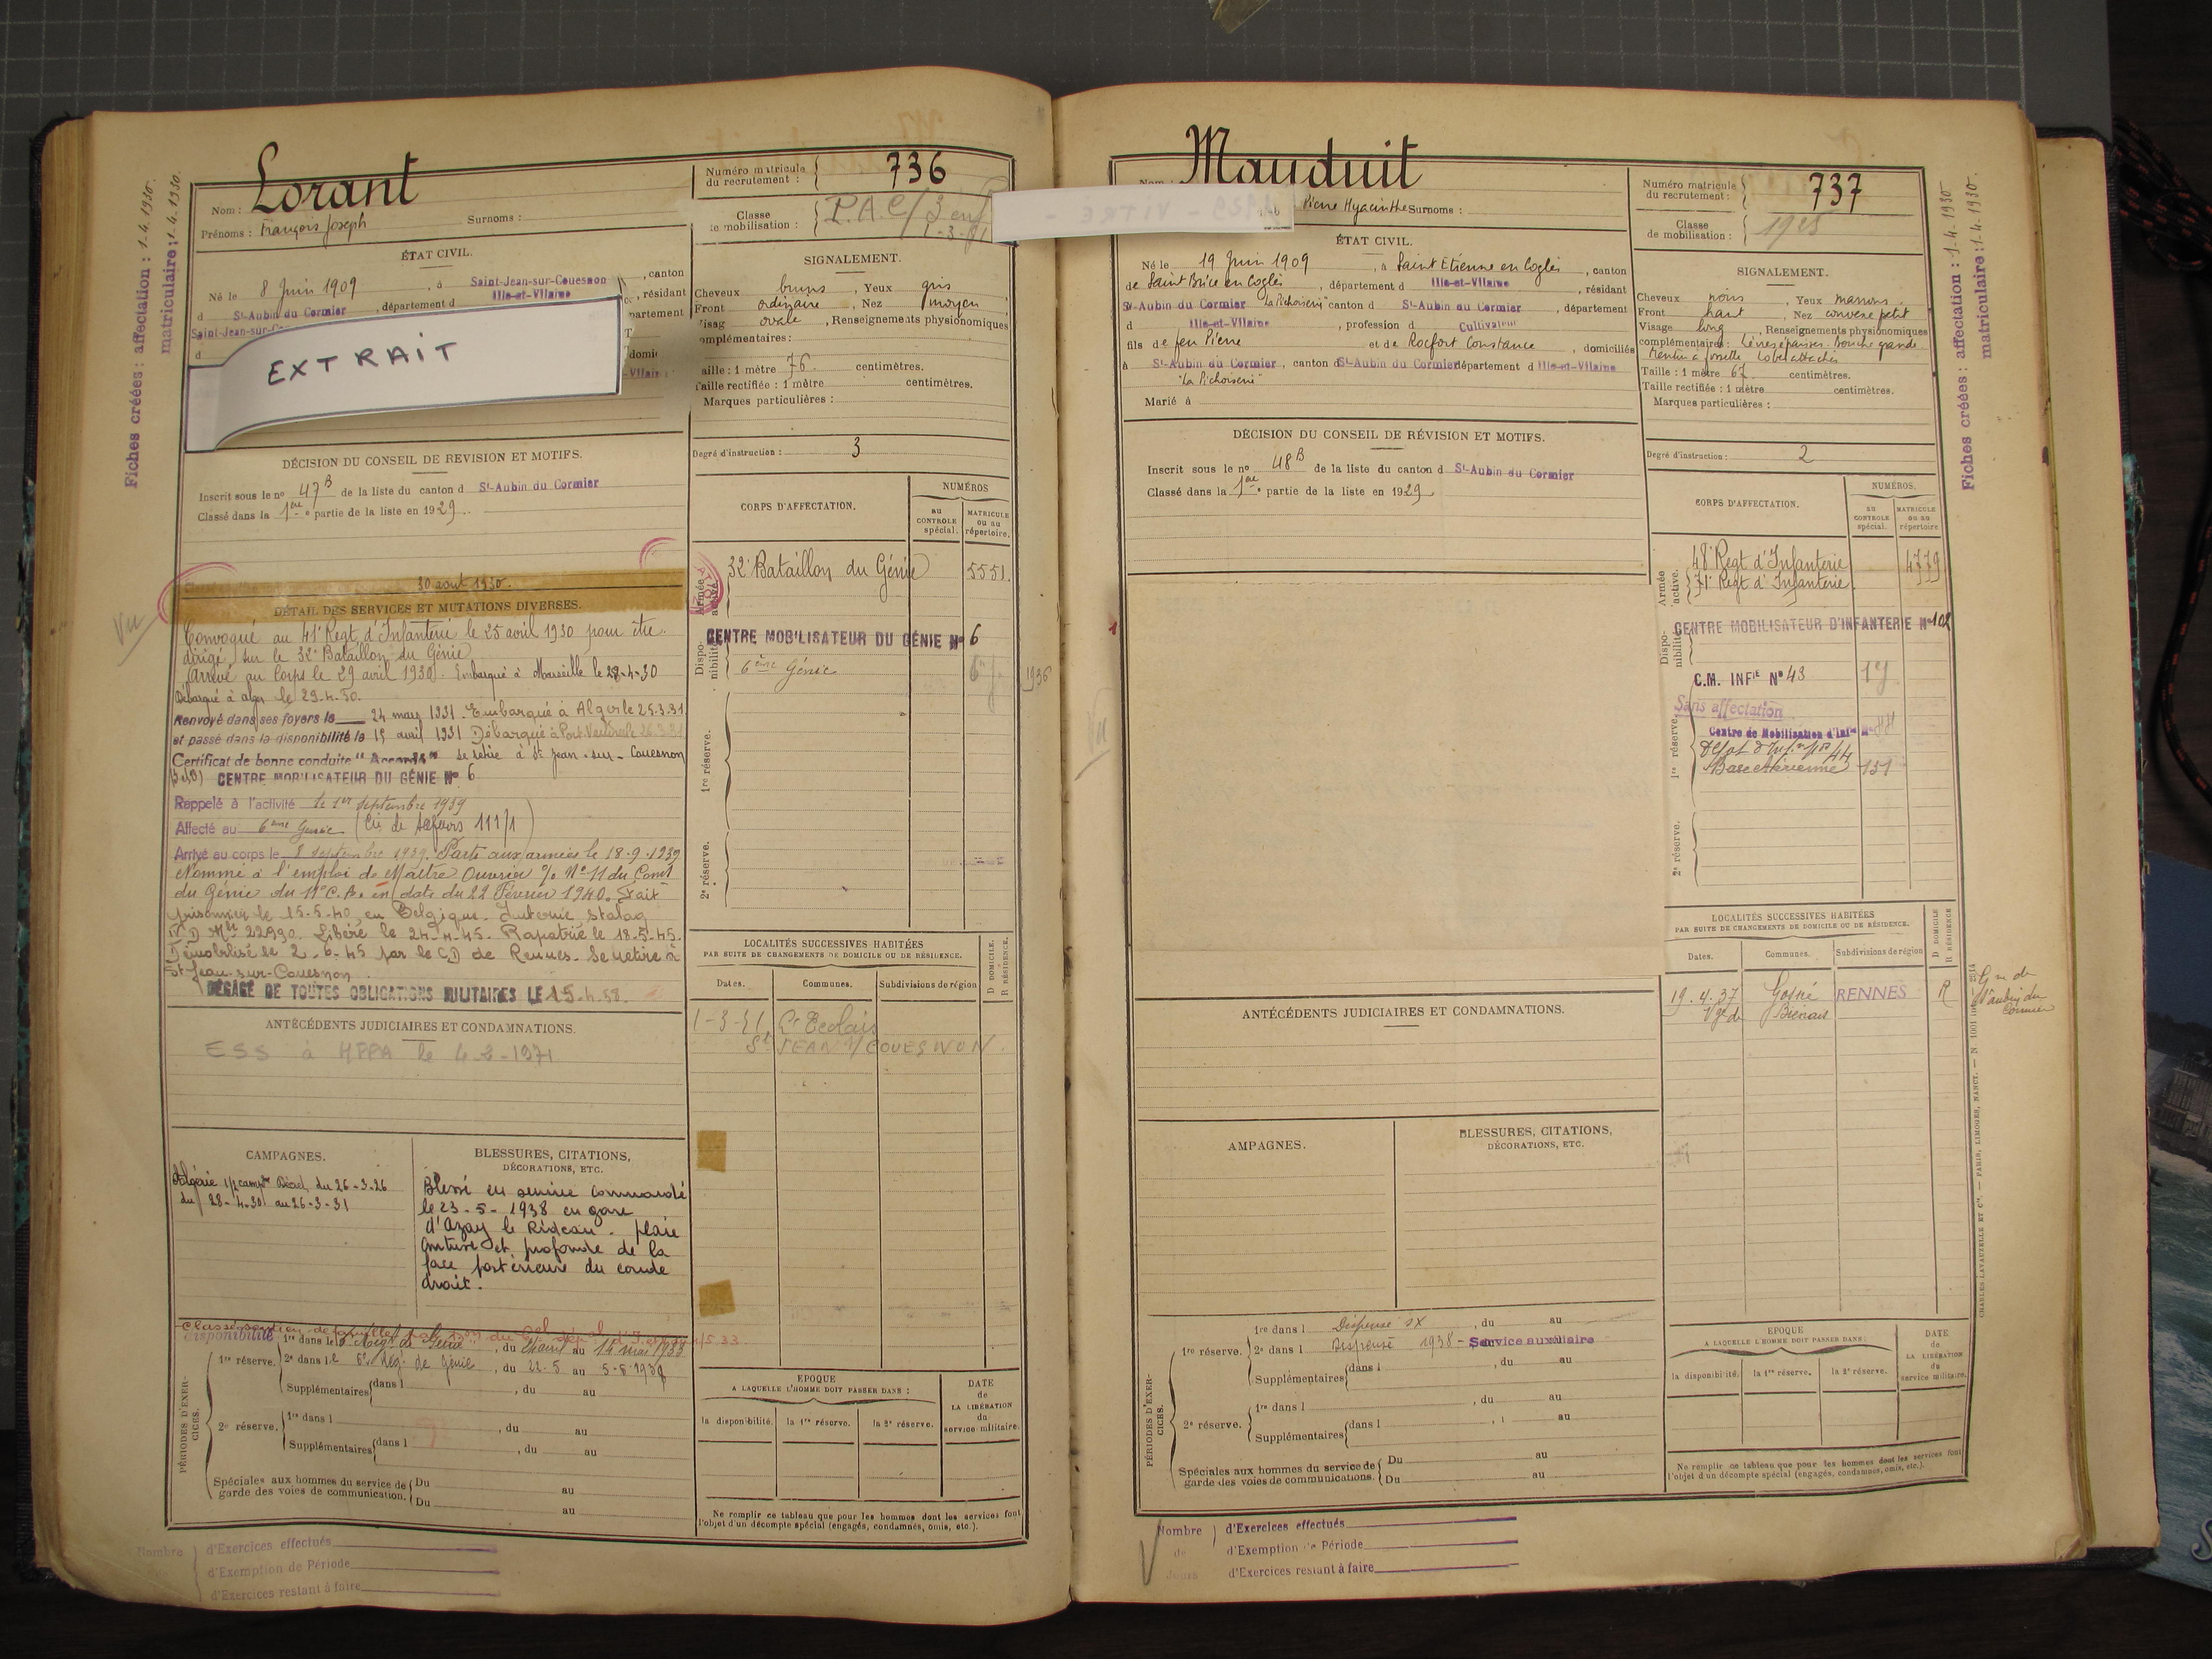 Fiches créées : affectation : 1.4.1930.
matriculaire : 1.4.1930.
Lorant
Nom :
Prénoms : François Joseph Surnoms :
Numéro matricule du recrutement : 736
Classe de mobilisation : P.A.C/3 enf
ÉTAT CIVIL.
Né le 8 Juin 1909, à Saint-Jean-sur-Couesnon, canton
d St-Aubin du Cormier, département d Ille-et-Vilaine, résidant
EXTRAIT
SIGNALEMENT.
Cheveux bruns, Yeux gris
Front ordinaire, Nez moyen
ovale, Renseignements physionomiques
complémentaires :
Taille : 1 mètre 76 centimètres.
Taille rectifiée : 1 mètre centimètres.
Marques particulières :
Degré d'instruction : 3
DÉCISION DU CONSEIL DE REVISION ET MOTIFS.
Inscrit sous le no 47B de la liste du canton d St-Aubin du Cormier
Classé dans la 1ère partie de la liste en 1929.
30 août 1930.
DÉTAIL DES SERVICES ET MUTATIONS DIVERSES.
Vu
Convoqué au 41e Regt d'Infanterie le 25 avril 1930 pour être
dirigé sur le 32e Bataillon du Génie
Arrivé au Corps le 29 avril 1930. Embarqué à Marseille le 28-4-30
Débarqué à alger le 29-4-30.
Renvoyé dans ses foyers le 24 mars 1931. Embarqué à Alger le 25.3.31
et passé dans la disponibilité le 15 avril 1931 Débarqué à Port-Vendres le 26.3.31
Certificat de bonne conduite "Accordé" Se retire à St Jean-sur-Couesnon
CENTRE MOBILISATEUR DU GÉNIE No 6
Rappelé à l'activité le 1er septembre 1939
Affecté au 6ème Génie (Cie de Sapeurs 111/1)
Arrivé au corps le 8 septembre 1939. Parti aux armées le 18-9-1939
Nommé à l'emploi de Maître Ouvrier No 11 du Comt
du Génie du 11e C.A. en date du 22 Février 1940. Fait
prisonnier le 15-5-40 en Belgique. Interné stalag
IV D Mle 22990. Libéré le 24-4-45. Rapatrié le 18-5-45.
Démobilisé le 2-6-45 par le CD de Rennes. Se retire à
St Jean-sur-Couesnon.
DÉGAGÉ DE TOUTES OBLIGATIONS MILITAIRES LE 15-4-58.
CORPS D'AFFECTATION.
NUMÉROS
AU CONTROLE spécial.
MATRICULE OU AU répertoire.
Armée active.
32e Bataillon du Génie 5551.
Disponibilité
CENTRE MOBILISATEUR DU GÉNIE No 6
6ème Génie
1936
1re réserve.
2e réserve.
ANTÉCÉDENTS JUDICIAIRES ET CONDAMNATIONS.
ESS à MPPA le 4-2-1971
LOCALITÉS SUCCESSIVES HABITÉES
PAR SUITE DE CHANGEMENTS DE DOMICILE OU DE RÉSIDENCE.
Dates. Communes. Subdivisions de région
D DOMICILE. R RÉSIDENCE.
St JEAN S/ COUESNON
CAMPAGNES.
du 28-4-30 au 26-3-31
BLESSURES, CITATIONS,
DÉCORATIONS, ETC.
Blessé en service commandé
le 23-5-1938 en gare
d'Azay le Rideau. plaie
contuse et profonde de la
face postérieure du coude
droit.
disponibilité
PÉRIODES D'EXERCICES.
1re réserve.
2e dans le 6e Reg. de Génie, du 22-5 au
Supplémentaires dans l , du au
2e réserve.
1re dans l , du au
Supplémentaires dans l , du au
Spéciales aux hommes du service de garde des voies de communication. Du au
Du au
EPOQUE
A LAQUELLE L'HOMME DOIT PASSER DANS :
la disponibilité. la 1re réserve. la 2e réserve.
DATE de LA LIBÉRATION du service militaire.
Ne remplir ce tableau que pour les hommes dont les services font
l'objet d'un décompte spécial (engagés, condamnés, omis, etc.).
Nombre de Jours
d'Exercices effectués
d'Exemption de Période
d'Exercices restant à faire
Mauduit
Pierre Hyacinthe Surnoms :
Numéro matricule du recrutement : 737
Classe de mobilisation :
ÉTAT CIVIL.
Né le 19 Juin 1909, à Saint Etienne en Coglès, canton
de Saint Brice en Coglès, département d Ille-et-Vilaine, résidant
St-Aubin du Cormier "La Pichoiserie" canton d St-Aubin du Cormier, département
d Ille-et-Vilaine, profession d Cultivateur
fils de feu Pierre et de Rocfort Constance, domiciliés
à St-Aubin du Cormier, canton d St-Aubin du Cormier département d Ille-et-Vilaine
"La Pichoiserie"
Marié à
SIGNALEMENT.
Cheveux noirs, Yeux marrons.
Front haut, Nez convexe petit
Visage long, Renseignements physionomiques
complémentaires : Lèvres épaisses. Bouche grande.
Menton à fossette Lobes attachés
Taille : 1 mètre 67 centimètres.
Taille rectifiée : 1 mètre centimètres.
Marques particulières :
Degré d'instruction : 2
DÉCISION DU CONSEIL DE RÉVISION ET MOTIFS.
Inscrit sous le no 48B de la liste du canton d St-Aubin du Cormier
Classé dans la 1ère partie de la liste en 1929.
Vu
CORPS D'AFFECTATION.
NUMÉROS.
AU CONTROLE spécial.
MATRICULE OU AU répertoire
Armée active.
48e Regt d'Infanterie 4779
71e Regt d'Infanterie
Disponibilité
CENTRE MOBILISATEUR D'INFANTERIE No 102
C.M. INFIE No 43
Sans affectation
1re réserve.
Centre de Mobilisation d'Infie No 44
Dépôt d'Inf. no 44
Base Aérienne 151
2e réserve.
Fiches créées : affectation : 1-4-1930
matriculaire : 1-4-1930.
LOCALITÉS SUCCESSIVES HABITÉES
PAR SUITE DE CHANGEMENTS DE DOMICILE OU DE RÉSIDENCE.
Dates. Communes. Subdivisions de région
D DOMICILE R RÉSIDENCE
19.4.37 Gosné RENNES R
Vge de
St aubin du Cormier
ANTÉCÉDENTS JUDICIAIRES ET CONDAMNATIONS.
AMPAGNES.
BLESSURES, CITATIONS,
DÉCORATIONS, ETC.
PÉRIODES D'EXERCICES.
1re réserve.
1re dans l Dispensé , du au
2e dans l Dispensé 1938 - Service auxiliaire
Supplémentaires dans l , du au
2e réserve.
1re dans l , du au
Supplémentaires dans l au
Spéciales aux hommes du service de garde des voies de communications. Du au
Du au
EPOQUE
A LAQUELLE L'HOMME DOIT PASSER DANS :
la disponibilité. la 1re réserve. la 2e réserve.
DATE de LA LIBÉRATION du service militaire.
Ne remplir ce tableau que pour les hommes dont les services font
l'objet d'un décompte spécial (engagés, condamnés, omis, etc.).
CHARLES-LAVAUZELLE ET Cie. — PARIS, LIMOGES, NANCY.
Nombre de Jours
d'Exercices effectués
d'Exemption de Période
d'Exercices restant à faire